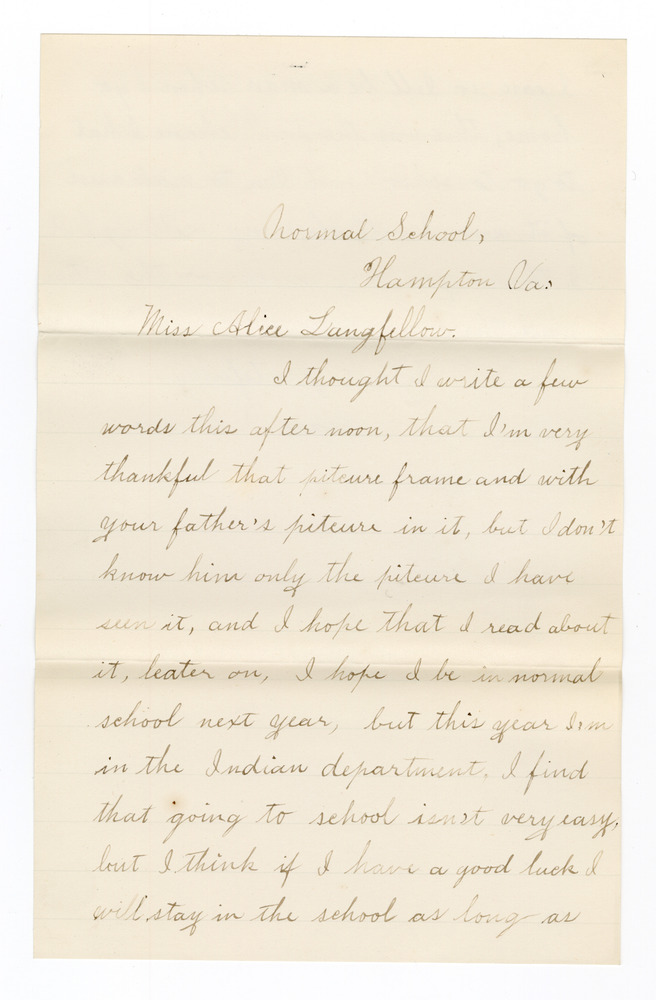 Normal School,
Hampton Va.
Miss Alice Lungfellow.
I thought I write a few
words this after noon, that I'm very
thankful that pitcure frame and with
your father's pitcure in it, but I don't
know him only the pitcure I have
seen it, and I hope that I read about
it, leater on, I hope I be in normal
school next year, but this year I'm
in the Indian department. I find
that going to school isn't very easy,
but I think if I have a good luck I
will stay in the school as long as